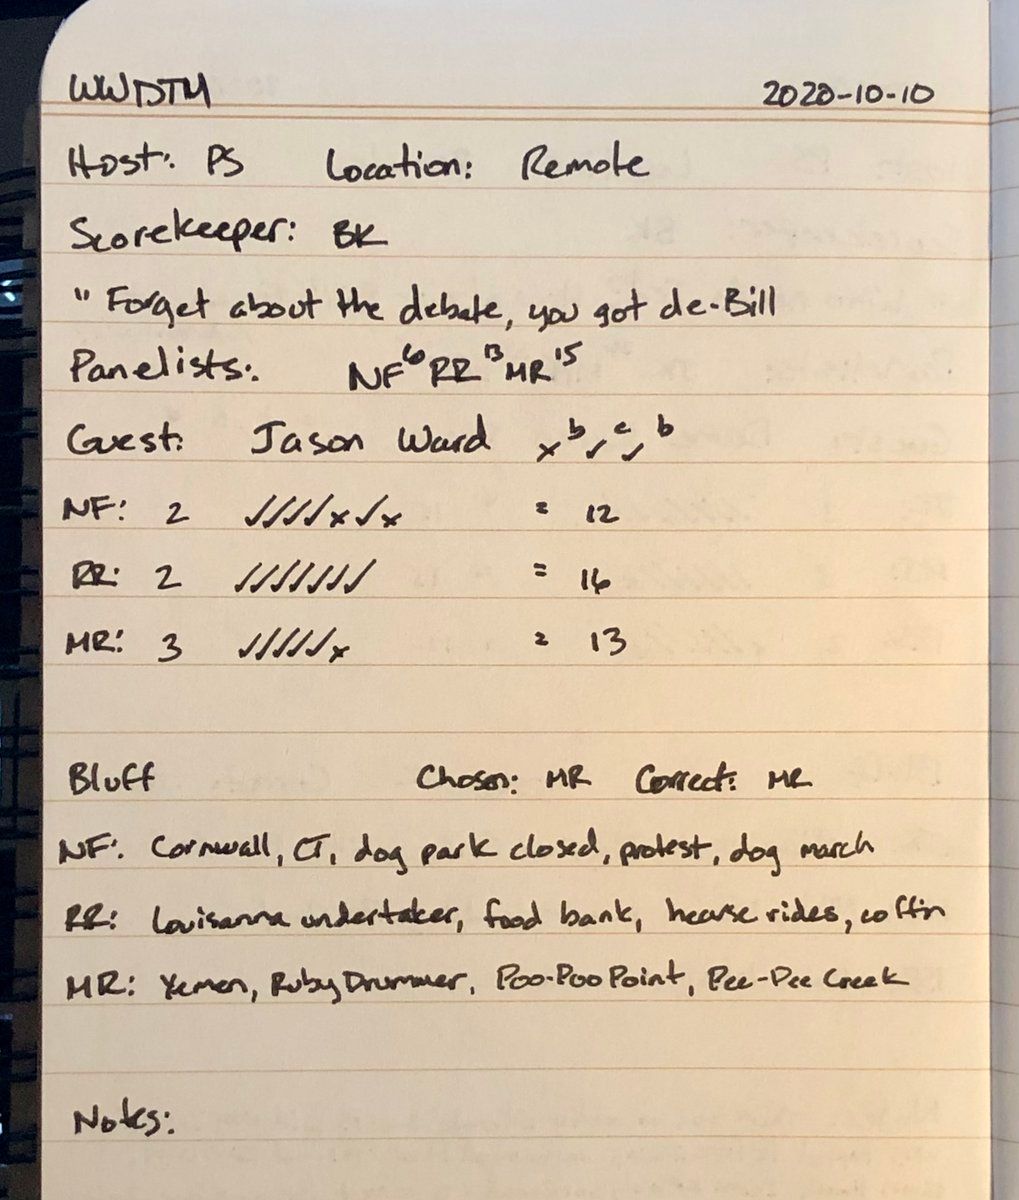 WWDTM 2020-10-10
Host: PS Location: Remote
Scorekeeper: BK
" Forget about the debate, you got de-Bill
Panelists: NF⁶ RR¹³ MR¹⁵
Guest: Jason Ward ×ᵇ ✓ᶜ ✓ᵇ
NF: 2 ✓✓✓✓×✓× = 12
RR: 2 ✓✓✓✓✓✓✓ = 16
MR: 3 ✓✓✓✓✓× = 13
Bluff Chosen: MR Correct: MR
NF: Cornwall, CT, dog park closed, protest, dog march
RR: Louisanna undertaker, food bank, hearse rides, coffin
MR: Yemen, Ruby Drummer, Poo-Poo Point, Pee-Dee Creek
Notes: